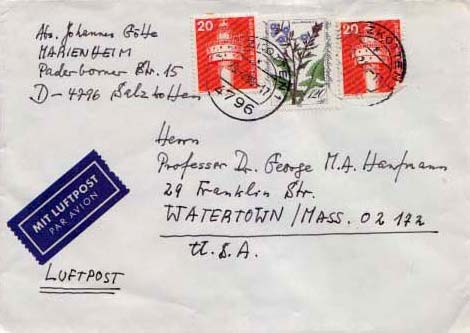 Abs. Johannes Götte
MARIENHEIM
Paderborner Str. 15
D-4796 Salzkotten
20
120
20
4796
ZKOTTEN
Herrn
Professor Dr. George M.A. Hanfmann
29 Franklin Str.
WATERTOWN/MASS. 02172
U.S.A.
MIT LUFTPOST
PAR AVION
LUFTPOST